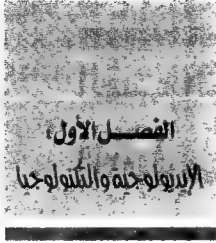 الفصل الأول:
الإيديولوجية والتكنولوجيا